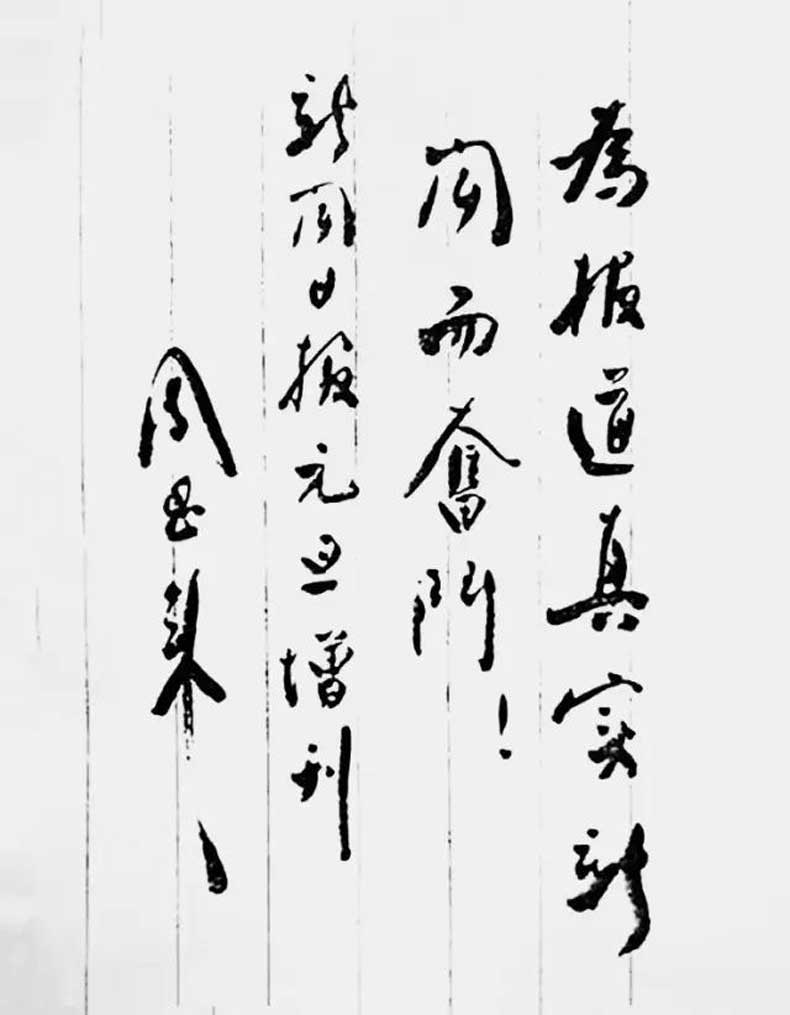 為报道真实新
闻而奮鬥！
新闻日报元旦增刊
周恩来